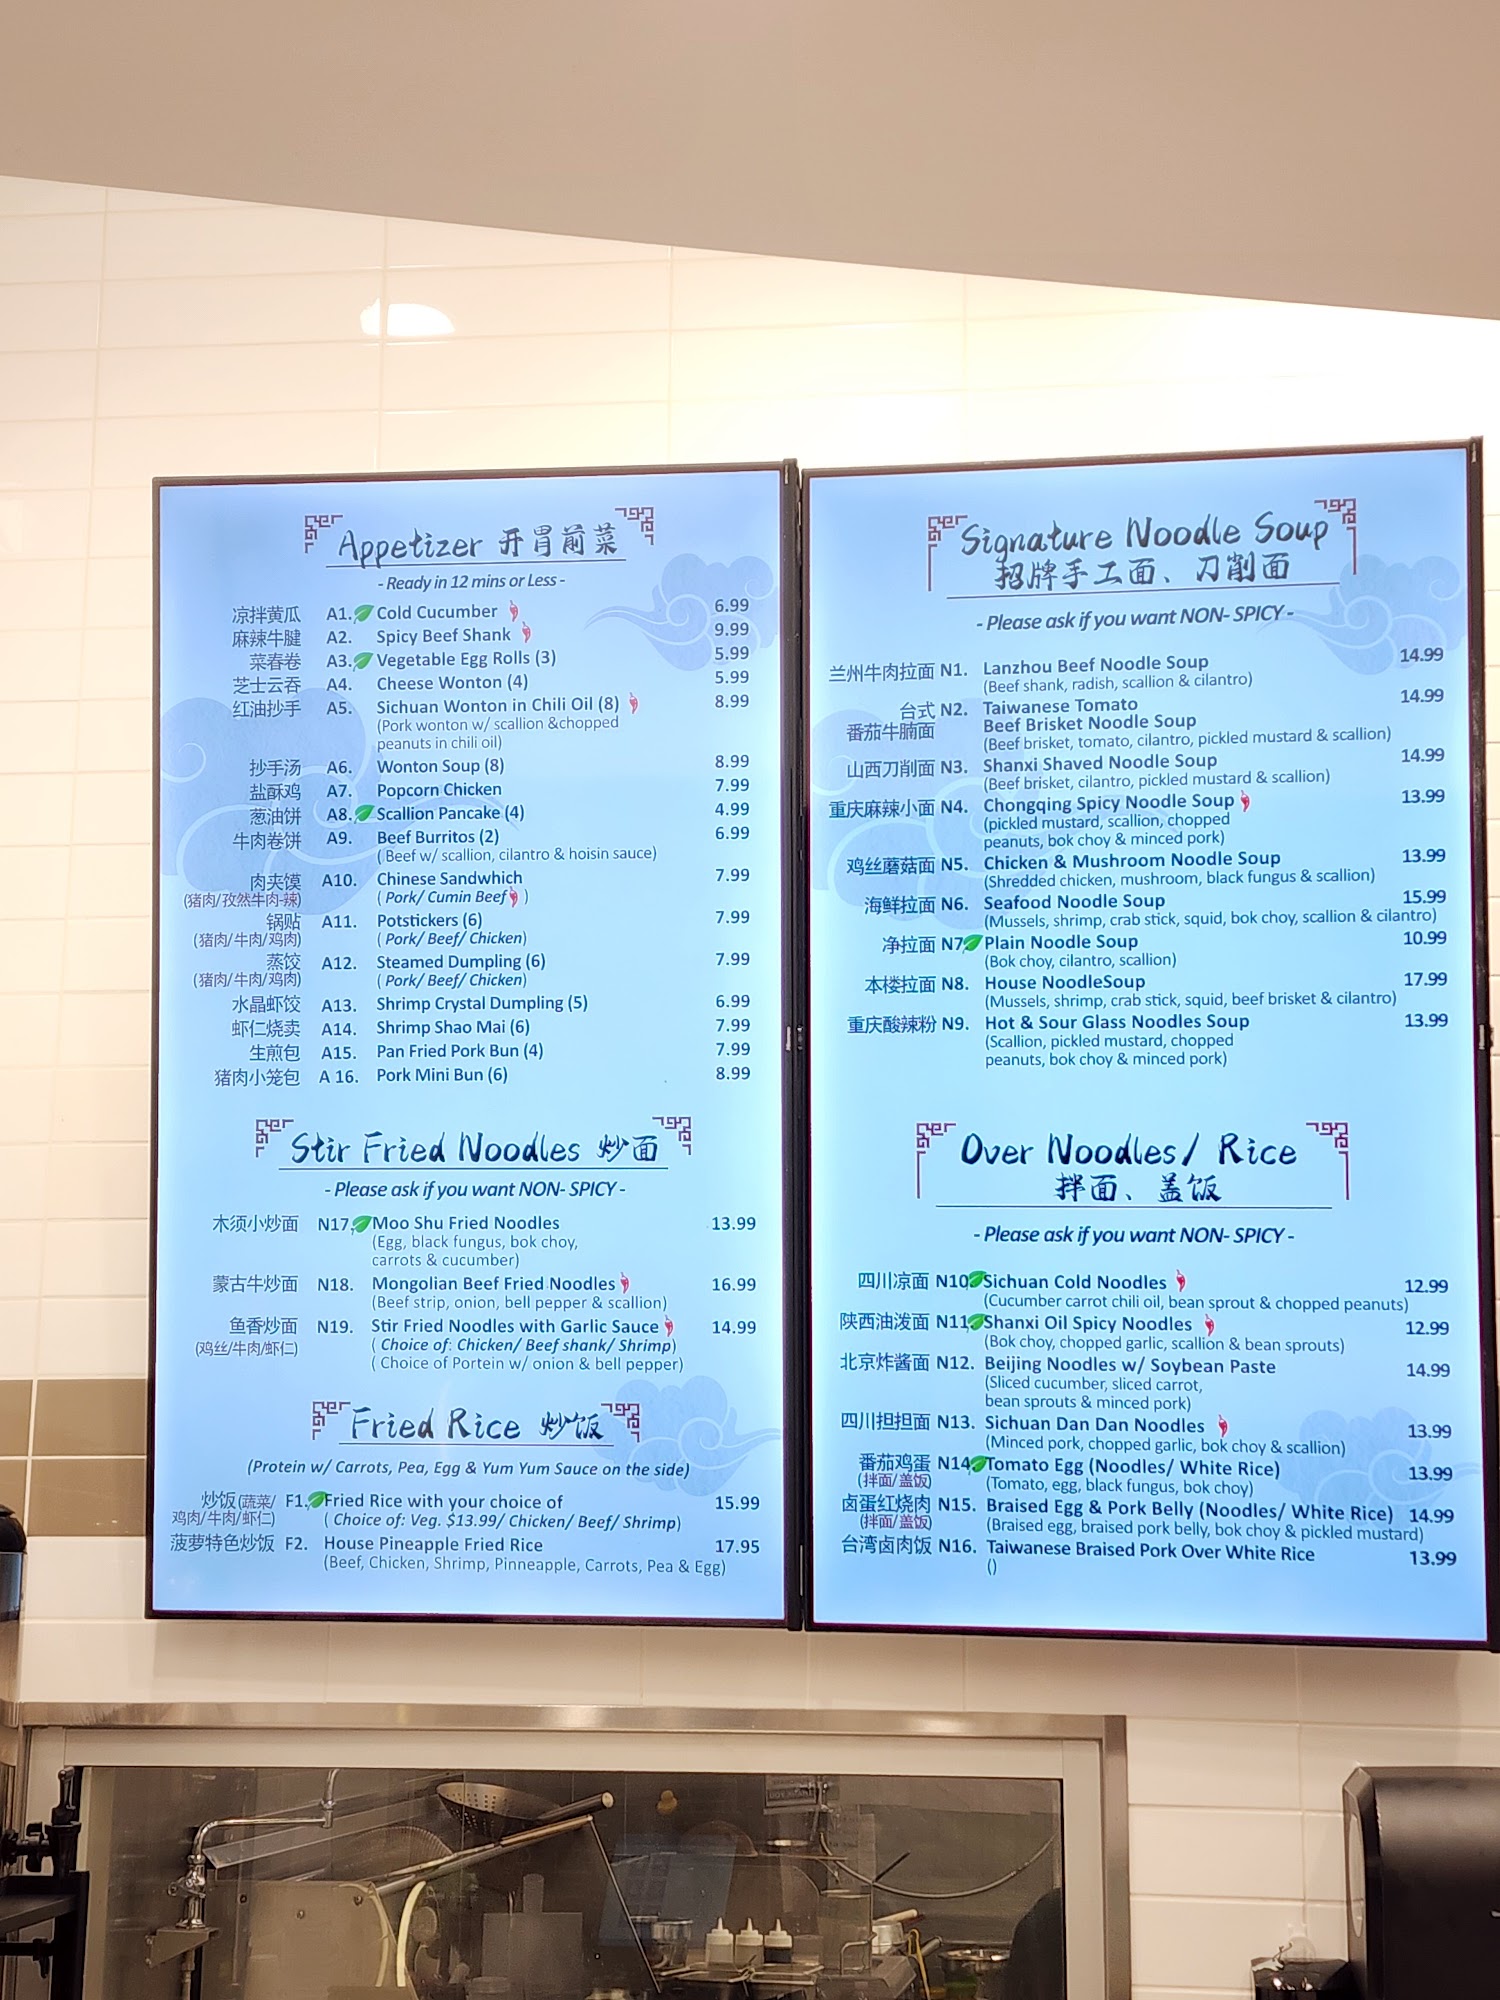 Appetizer 开胃前菜
- Ready in 12 mins or Less -
凉拌黄瓜 A1. Cold Cucumber 6.99
麻辣牛腱 A2. Spicy Beef Shank 9.99
菜春卷 A3. Vegetable Egg Rolls (3) 5.99
芝士云吞 A4. Cheese Wonton (4) 5.99
红油抄手 A5. Sichuan Wonton in Chili Oil (8) 8.99
(Pork wonton w/ scallion &chopped
peanuts in chili oil)
抄手汤 A6. Wonton Soup (8) 8.99
盐酥鸡 A7. Popcorn Chicken 7.99
葱油饼 A8. Scallion Pancake (4) 4.99
牛肉卷饼 A9. Beef Burritos (2) 6.99
( Beef w/ scallion, cilantro & hoisin sauce)
肉夹馍 A10. Chinese Sandwhich 7.99
(猪肉/孜然牛肉-辣) ( Pork/ Cumin Beef )
锅贴 A11. Potstickers (6) 7.99
(猪肉/牛肉/鸡肉) ( Pork/ Beef/ Chicken)
蒸饺 A12. Steamed Dumpling (6) 7.99
(猪肉/牛肉/鸡肉) ( Pork/ Beef/ Chicken)
水晶虾饺 A13. Shrimp Crystal Dumpling (5) 6.99
虾仁烧卖 A14. Shrimp Shao Mai (6) 7.99
生煎包 A15. Pan Fried Pork Bun (4) 7.99
猪肉小笼包 A 16. Pork Mini Bun (6) 8.99
Stir Fried Noodles 炒面
- Please ask if you want NON- SPICY -
木须小炒面 N17. Moo Shu Fried Noodles 13.99
(Egg, black fungus, bok choy,
carrots & cucumber)
蒙古牛炒面 N18. Mongolian Beef Fried Noodles 16.99
(Beef strip, onion, bell pepper & scallion)
鱼香炒面 N19. Stir Fried Noodles with Garlic Sauce 14.99
(鸡丝/牛肉/虾仁) ( Choice of: Chicken/ Beef shank/ Shrimp)
( Choice of Portein w/ onion & bell pepper)
Fried Rice 炒饭
(Protein w/ Carrots, Pea, Egg & Yum Yum Sauce on the side)
炒饭(蔬菜/ F1. Fried Rice with your choice of 15.99
鸡肉/牛肉/虾仁) ( Choice of: Veg. $13.99/ Chicken/ Beef/ Shrimp)
菠萝特色炒饭 F2. House Pineapple Fried Rice 17.95
(Beef, Chicken, Shrimp, Pinneapple, Carrots, Pea & Egg)
Signature Noodle Soup
招牌手工面、刀削面
- Please ask if you want NON- SPICY -
兰州牛肉拉面 N1. Lanzhou Beef Noodle Soup 14.99
(Beef shank, radish, scallion & cilantro)
台式 N2. Taiwanese Tomato 14.99
番茄牛腩面 Beef Brisket Noodle Soup
(Beef brisket, tomato, cilantro, pickled mustard & scallion)
山西刀削面 N3. Shanxi Shaved Noodle Soup 14.99
(Beef brisket, cilantro, pickled mustard & scallion)
重庆麻辣小面 N4. Chongqing Spicy Noodle Soup 13.99
(pickled mustard, scallion, chopped
peanuts, bok choy & minced pork)
鸡丝蘑菇面 N5. Chicken & Mushroom Noodle Soup 13.99
(Shredded chicken, mushroom, black fungus & scallion)
海鲜拉面 N6. Seafood Noodle Soup 15.99
(Mussels, shrimp, crab stick, squid, bok choy, scallion & cilantro)
净拉面 N7. Plain Noodle Soup 10.99
(Bok choy, cilantro, scallion)
本楼拉面 N8. House NoodleSoup 17.99
(Mussels, shrimp, crab stick, squid, beef brisket & cilantro)
重庆酸辣粉 N9. Hot & Sour Glass Noodles Soup 13.99
(Scallion, pickled mustard, chopped
peanuts, bok choy & minced pork)
Over Noodles/ Rice
拌面、盖饭
- Please ask if you want NON- SPICY -
四川凉面 N10. Sichuan Cold Noodles 12.99
(Cucumber carrot chili oil, bean sprout & chopped peanuts)
陕西油泼面 N11. Shanxi Oil Spicy Noodles 12.99
(Bok choy, chopped garlic, scallion & bean sprouts)
北京炸酱面 N12. Beijing Noodles w/ Soybean Paste 14.99
(Sliced cucumber, sliced carrot,
bean sprouts & minced pork)
四川担担面 N13. Sichuan Dan Dan Noodles 13.99
(Minced pork, chopped garlic, bok choy & scallion)
番茄鸡蛋 N14. Tomato Egg (Noodles/ White Rice) 13.99
(拌面/盖饭) (Tomato, egg, black fungus, bok choy)
卤蛋红烧肉 N15. Braised Egg & Pork Belly (Noodles/ White Rice) 14.99
(拌面/盖饭) (Braised egg, braised pork belly, bok choy & pickled mustard)
台湾卤肉饭 N16. Taiwanese Braised Pork Over White Rice 13.99
()